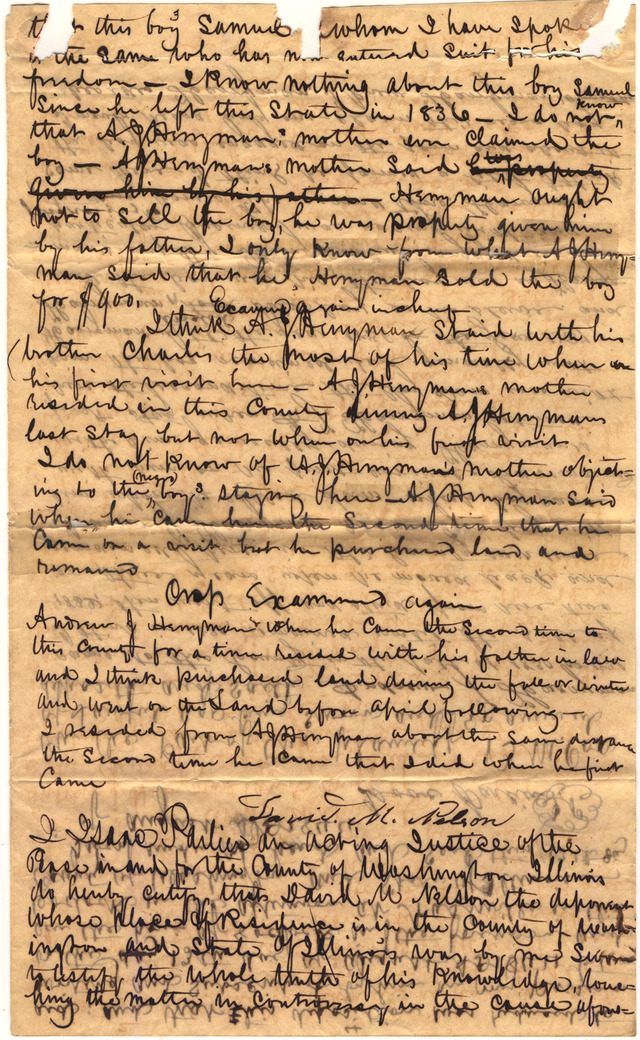 that this boy Samuel whom I have spoke
is the same who has now entered suit for his
freedom – I know nothing about this boy Samuel
Since he left this State in 1836 – I do not know
that A J Henyman's mother ever claimed the
boy – A J Henyman's mother said was property
given him by his father – Henyman ought
not to sell the boy, he was property given him
by his father, I only know from what A J Heny-
man said that he, Henyman sold the boy
for $900.
Examined again in chief
I think A. J. Henyman staid with his
brother Charles the most of his time when on
his first visit here – A J Henyman's mother
resided in this County during A. J Henymans
last stay but not when on his first visit
I do not know of A. J. Henyman's mother object-
ing to the negro boy's staying here – A J Henyman said
when he came here the second time that he
came on a visit but he purchased land and
remained
Cross Examined again
Andrew J Henyman when he came the second time to
this County for a time resided with his father in law
and I think purchased land during the fall or winter
and went on the Land before April following –
I resided from A J Henyman about the same distance
the second time he came that I did when he first
came
David. M. Nelson
I Isaac Parlier an acting Justice of the
Peace in and for the County of Washington Illinois
do hereby certify that David M Nelson the deponent
whose place of Residence is in the County of Wash-
ington and State of Illinois was by me sworn
to testify the whole truth of his knowledge, touc-
hing the matter in controversy in the cause afore-